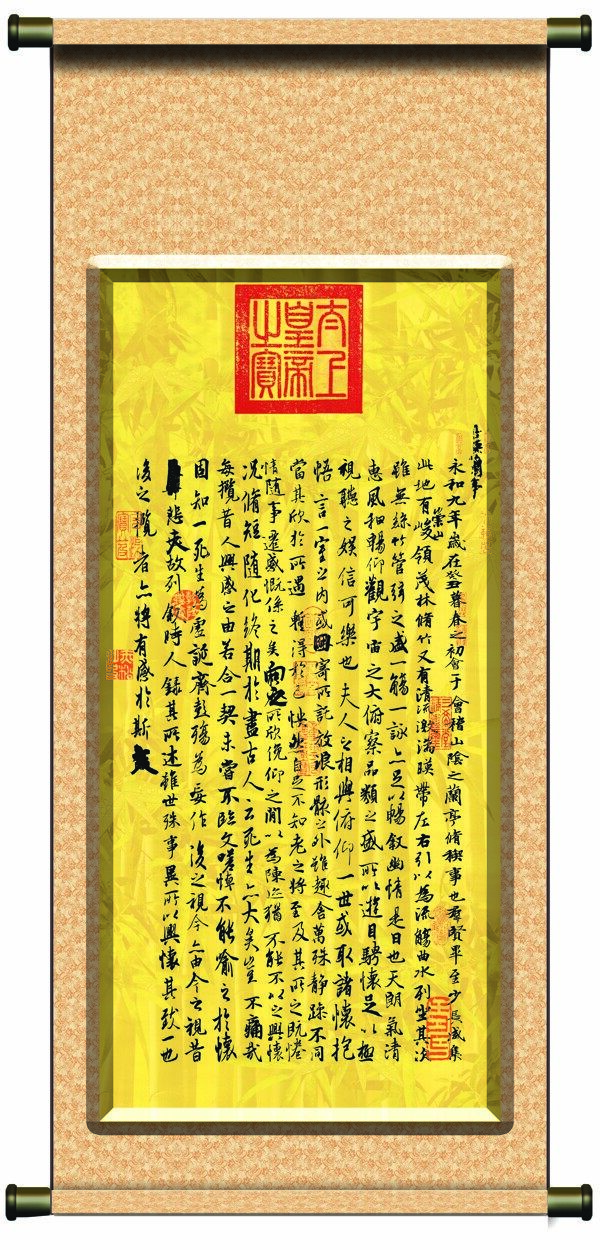 太上
皇帝
之寶
永和九年歲在癸丑暮春之初會于會稽山陰之蘭亭脩稧事也群賢畢至少長咸集
此地有崇山峻領茂林脩竹又有清流激湍暎帶左右引以為流觴曲水列坐其次
雖無絲竹管弦之盛一觴一詠亦足以暢叙幽情是日也天朗氣清
惠風和暢仰觀宇宙之大俯察品類之盛所以遊目騁懷足以極
視聽之娛信可樂也夫人之相與俯仰一世或取諸懷抱
悟言一室之內或因寄所託放浪形骸之外雖趣舍萬殊靜躁不同
當其欣於所遇暫得於己怏然自足不知老之將至及其所之既惓
情隨事遷感慨係之矣向之所欣俛仰之閒以為陳迹猶不能不以之興懷
況脩短隨化終期於盡古人云死生亦大矣豈不痛哉
每攬昔人興感之由若合一契未嘗不臨文嗟悼不能喻之於懷
固知一死生為虛誕齊彭殤為妄作後之視今亦由今之視昔
悲夫故列叙時人錄其所述雖世殊事異所以興懷其致一也
後之攬者亦將有感於斯文